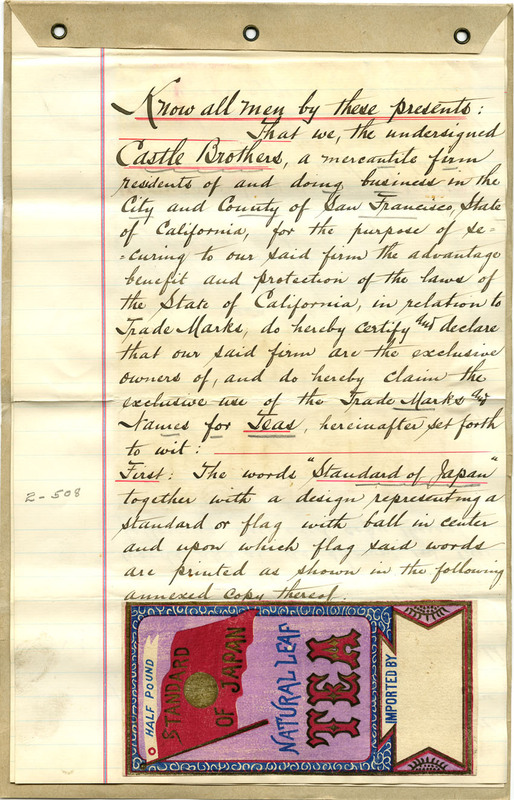 Know all men by these presents:
That we, the undersigned
Castle Brothers, a mercantile firm
residents of and doing business in the
City and County of San Francisco, State
of California, for the purpose of se=
=curing to our said firm the advantage
benefit and protection of the laws of
the State of California, in relation to
Trade Marks, do hereby certify and declare
that our said firm are the exclusive
owners of, and do hereby claim the
exclusive use of the Trade Marks and
Names for Teas, hereinafter set forth
to wit:
First: The words "Standard of Japan"
together with a design representing a
standard or flag with ball in center
and upon which flag said words
are printed as shown in the following
annexed copy thereof.
2-508
HALF POUND
STANDARD
OF JAPAN
NATURAL LEAF
TEA
IMPORTED BY